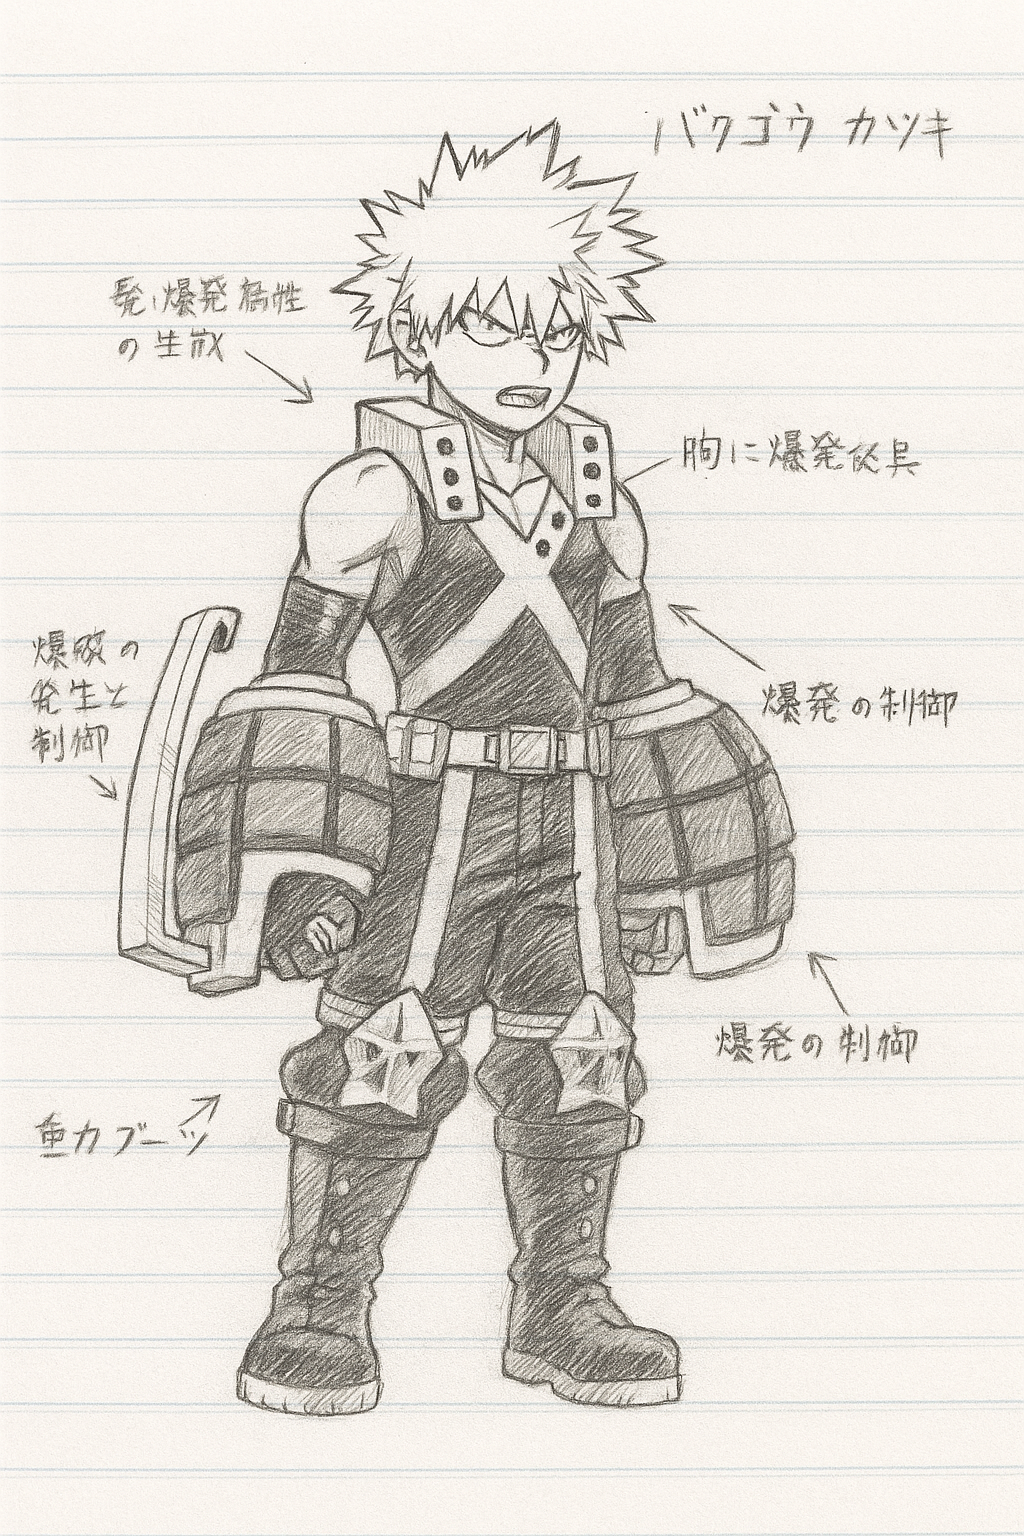 バクゴウ カツキ
爆発
の 生
胸に爆発 具
爆 の
発生と
制御
爆発の制御
爆発の制御
重力ブーツ